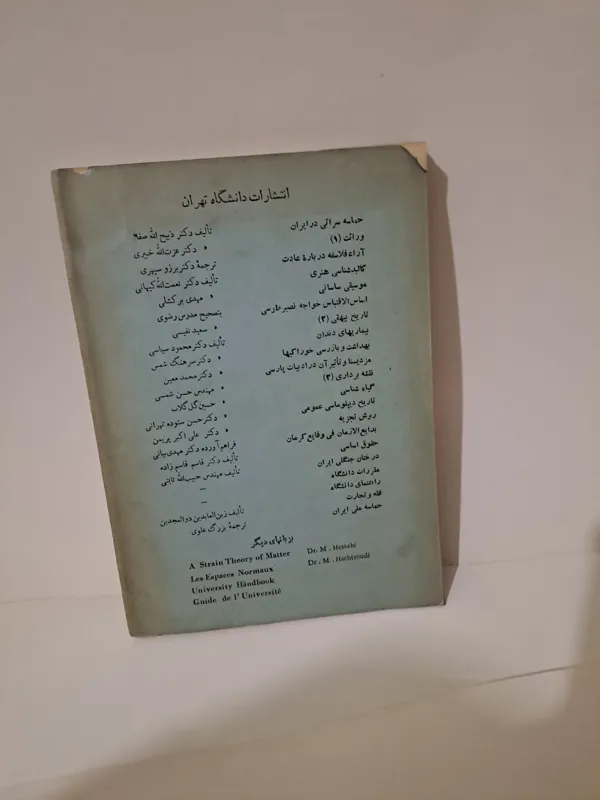 انتشارات دانشگاه تهران
حماسه سرائی در ایران تألیف دکتر ذبیح الله صفا
وراثت (۱) » دکتر عزت‌الله خبیری
آراء فلاسفه دربارهٔ عادت ترجمهٔ دکتر برزو سپهری
کالبدشناسی هنری تألیف دکتر نعمت‌الله کیهانی
موسیقی ساسانی » مهدی برکشلی
اساس‌الاقتباس خواجه نصیرطوسی بتصحیح مدرس رضوی
تاریخ بیهقی (۲) » سعید نفیسی
بیماریهای دندان تألیف دکتر محمود سیاسی
بهداشت و بازرسی خوراکیها » دکتر سرهنگ شمس
مزدیسنا و تأثیر آن در ادبیات پارسی » دکتر محمد معین
نقشه برداری (۲) » مهندس حسن شمسی
گیاه شناسی » حسین گل گلاب
تاریخ دیپلوماسی عمومی » دکتر حسن ستوده تهرانی
روش تجزیه » دکتر علی اکبر پریمن
بدایع‌الازمان فی وقایع کرمان فراهم آورده دکتر مهدی بیانی
حقوق اساسی تألیف دکتر قاسم قاسم زاده
درختان جنگلی ایران تألیف مهندس حبیب‌الله ثابتی
مقررات دانشگاه —
راهنمای دانشگاه —
فقه و تجارت تألیف زین‌العابدین ذوالمجدین
حماسه ملی ایران ترجمهٔ بزرگ علوی
بزبانهای دیگر
A Strain Theory of Matter Dr. M. Hessabi
Les Espaces Normaux Dr. M. Hachtroudi
University Handbook
Guide de l'Université